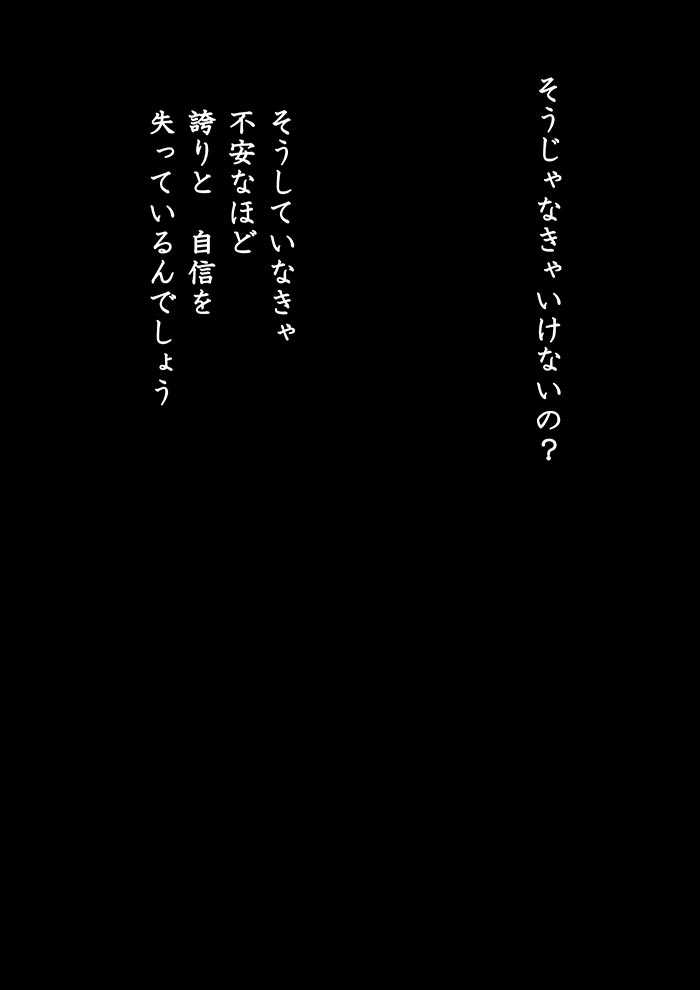 そうじゃなきゃいけないの？
そうしていなきゃ
不安なほど
誇りと　自信を
失っているんでしょう